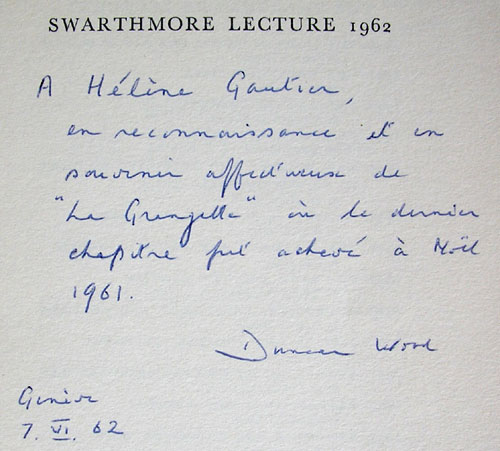 SWARTHMORE LECTURE 1962
A Hélène Gautier,
en reconnaissance et en
souvenir affectueux de
"La Grangette" où le dernier
chapitre fut achevé à Noël
1961.
Duncan Wood
Genève
7. VI. 62